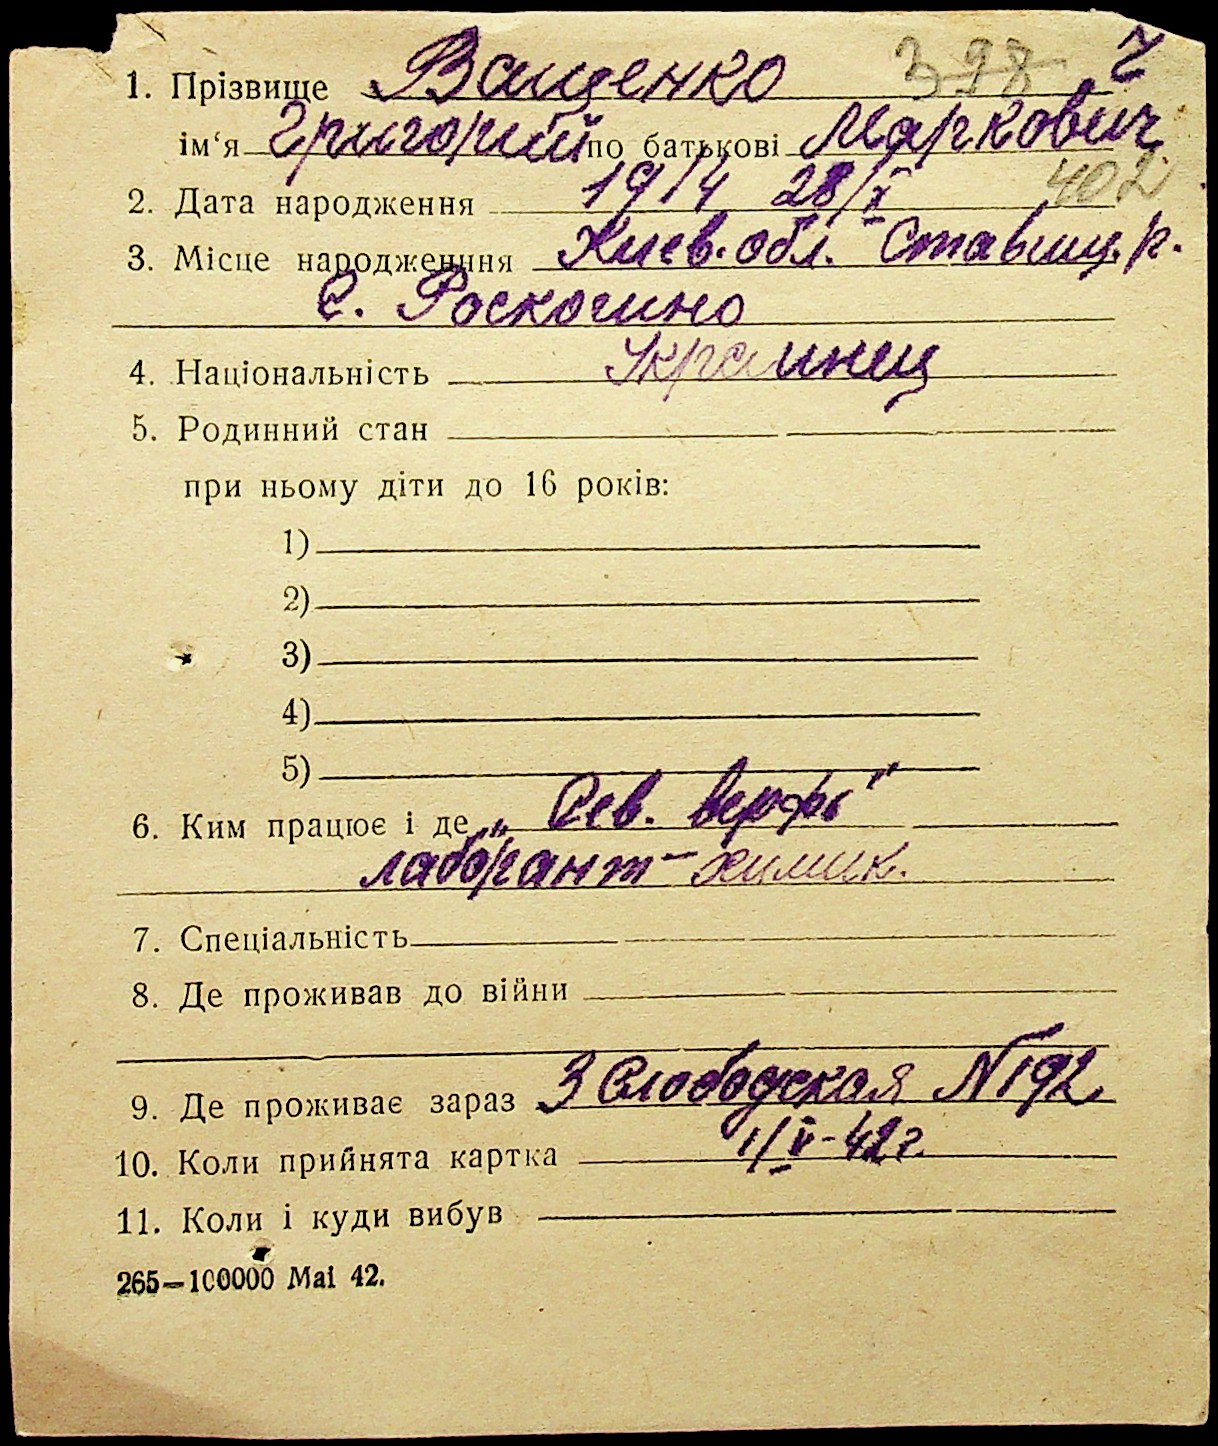 1. Прізвище Ващенко 398 Ч
ім‘я Григорий по батькові Маркович
2. Дата народження 1914 28/X 402
3. Місце народженння Киев. обл. Ставищ. р.
с. Роскошино
4. Національність Украинец
5. Родинний стан
при ньому діти до 16 років:
1)
2)
3)
4)
5)
6. Ким працює і де „Сев. верфь"
лаборант – химик.
7. Спеціальність
8. Де проживав до війни
9. Де проживає зараз 3 Слободская N 192
10. Коли прийнята картка 1/V-42 г.
11. Коли і куди вибув
265—100000 Mai 42.